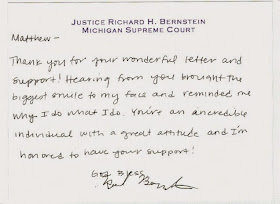 JUSTICE RICHARD H. BERNSTEIN
MICHIGAN SUPREME COURT
Matthew-
Thank you for your wonderful letter and
support! Hearing from you brought the
biggest smile to my face and reminded me
why I do what I do. You're an incredible
individual with a great attitude and I'm
honored to have your support!
God Bless,